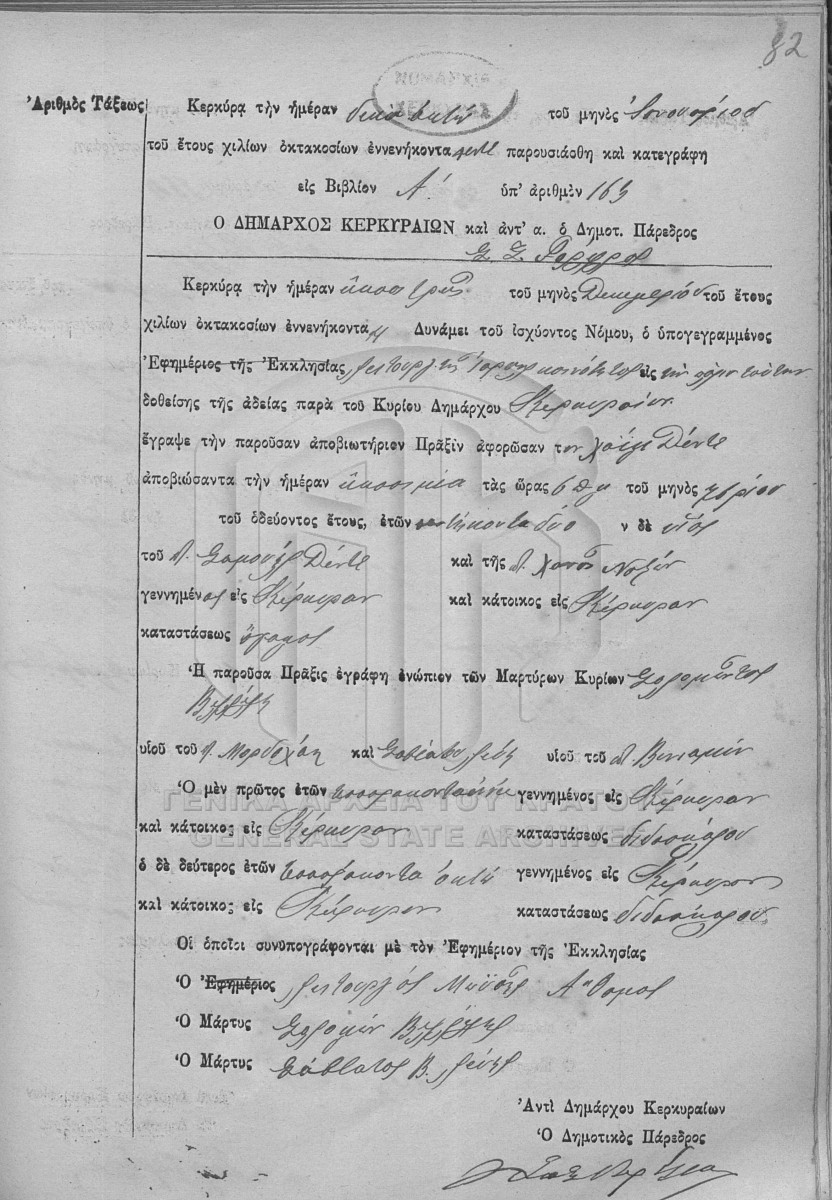 82
Ἀριθμὸς Τάξεως
Κερκύρᾳ τὴν ἡμέραν δεκα οκτώ τοῦ μηνὸς Ἰανουαρίου
τοῦ ἔτους χιλίων ὀκτακοσίων ἐννενήκοντα πεντε παρουσιάσθη καὶ κατεγράφη
εἰς Βιβλίον Α΄. ὑπ' ἀριθμὸν 163
Ο ΔΗΜΑΡΧΟΣ ΚΕΡΚΥΡΑΙΩΝ καὶ ἀντ' α. ὁ Δημοτ. Πάρεδρος
Κερκύρᾳ τὴν ἡμέραν εἴκοσι τρεῖς τοῦ μηνὸς Δεκεμβρίου τοῦ ἔτους
χιλίων ὀκτακοσίων ἐννενήκοντα Δυνάμει τοῦ ἰσχύοντος Νόμου, ὁ ὑπογεγραμμένος
Ἐφημέριος τῆς Ἐκκλησίας λειτουργὸς τῆς κοινότητος εἰς τὴν
δοθείσης τῆς ἀδείας παρὰ τοῦ Κυρίου Δημάρχου Κερκυραίων
ἔγραψε τὴν παροῦσαν ἀποβιωτήριον Πρᾶξιν ἀφορῶσαν τον Χαΐμ Δέντε
ἀποβιώσαντα τὴν ἡμέραν εἴκοσι μία τὰς ὥρας 6 π μ τοῦ μηνὸς
τοῦ ὁδεύοντος ἔτους, ἐτῶν δύο ν δὲ υἱὸς
τοῦ π. Σαμουὴλ Δέντε καὶ τῆς π. Χανᾶ
γεννημένος εἰς Κέρκυραν καὶ κάτοικος εἰς Κέρκυραν
καταστάσεως ἄγαμος
Ἡ παροῦσα Πρᾶξις ἐγράφη ἐνώπιον τῶν Μαρτύρων Κυρίων Σολομῶντος
Βελλέλη
υἱοῦ τοῦ π. Μορδοχάη καὶ Σαββάτου Λεύη υἱοῦ τοῦ π. Βενιαμίν
Ὁ μὲν πρῶτος ἐτῶν γεννημένος εἰς Κέρκυραν
καὶ κάτοικος εἰς Κέρκυραν καταστάσεως διδασκάλου
ὁ δὲ δεύτερος ἐτῶν τεσσαράκοντα ὀκτώ γεννημένος εἰς Κέρκυραν
καὶ κάτοικος εἰς Κέρκυραν καταστάσεως διδασκάλου
Οἱ ὁποῖοι συνυπογράφονται μὲ τὸν Ἐφημέριον τῆς Ἐκκλησίας
Ὁ Ἐφημέριος λειτουργὸς Μωϋσῆς
Ὁ Μάρτυς Σολομών Βελλέλης
Ὁ Μάρτυς Σάββατος Β. Λεύης
Ἀντὶ Δημάρχου Κερκυραίων
Ὁ Δημοτικὸς Πάρεδρος
ΓΕΝΙΚΑ ΑΡΧΕΙΑ ΤΟΥ ΚΡΑΤΟΥΣ
GENERAL STATE ARCHIVES